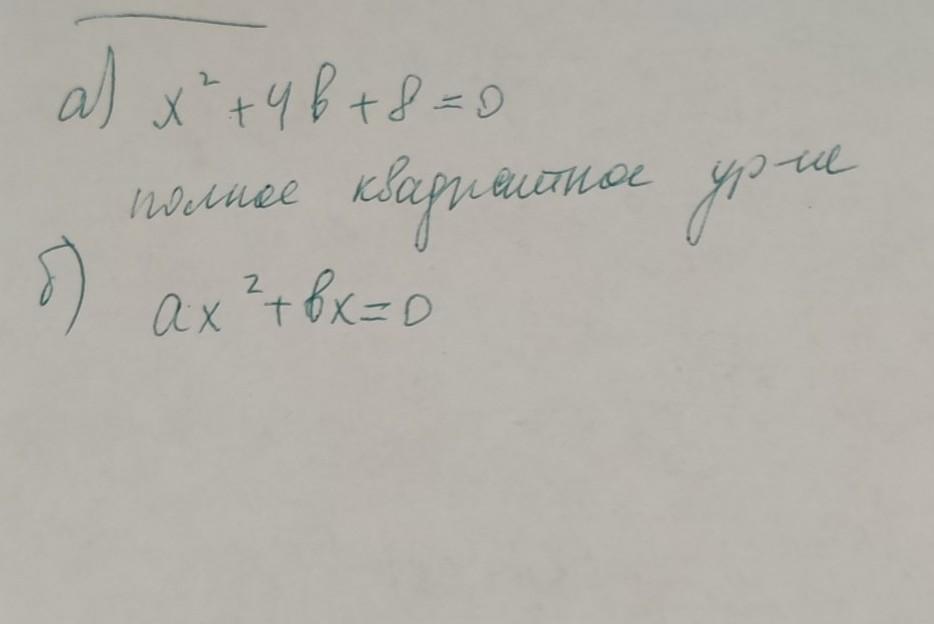 а) x² + 4в + 8 = 0
полное квадратное ур-ие
б)
ax² + вx = 0